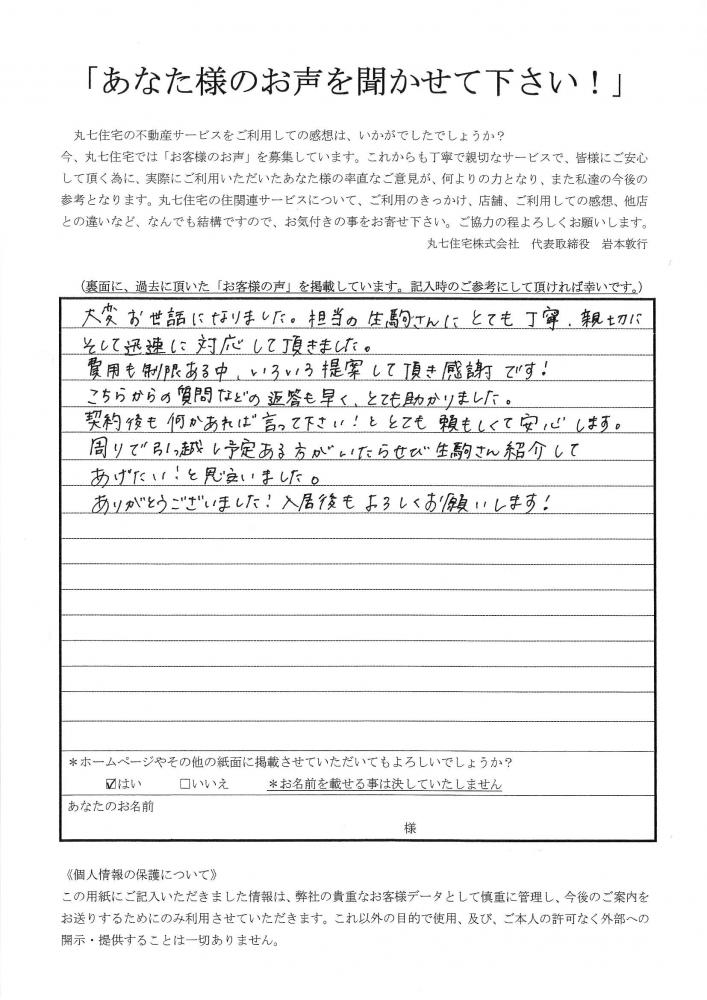 「あなた様のお声を聞かせて下さい！」
丸七住宅の不動産サービスをご利用しての感想は、いかがでしたでしょうか？
今、丸七住宅では「お客様のお声」を募集しています。これからも丁寧で親切なサービスで、皆様にご安心
して頂く為に、実際にご利用いただいたあなた様の率直なご意見が、何よりの力となり、また私達の今後の
参考となります。丸七住宅の住関連サービスについて、ご利用のきっかけ、店舗、ご利用しての感想、他店
との違いなど、なんでも結構ですので、お気付きの事をお寄せ下さい。ご協力の程よろしくお願いします。
丸七住宅株式会社　代表取締役　岩本敦行
（裏面に、過去に頂いた「お客様の声」を掲載しています。記入時のご参考にして頂ければ幸いです。）
大変お世話になりました。担当の生駒さんにとても丁寧、親切に
そして迅速に対応して頂きました。
費用も制限ある中、いろいろ提案して頂き感謝です！
こちらからの質問などの返答も早く、とても助かりました。
契約後も何かあれば言って下さい！ととても頼もしくて安心します。
周りで引っ越し予定ある方がいたらぜひ生駒さん紹介して
あげたい！と思いました。
ありがとうございました！入居後もよろしくお願いします！
＊ホームページやその他の紙面に掲載させていただいてもよろしいでしょうか？
☑はい　□いいえ　＊お名前を載せる事は決していたしません
あなたのお名前
様
《個人情報の保護について》
この用紙にご記入いただきました情報は、弊社の貴重なお客様データとして慎重に管理し、今後のご案内を
お送りするためにのみ利用させていただきます。これ以外の目的で使用、及び、ご本人の許可なく外部への
開示・提供することは一切ありません。